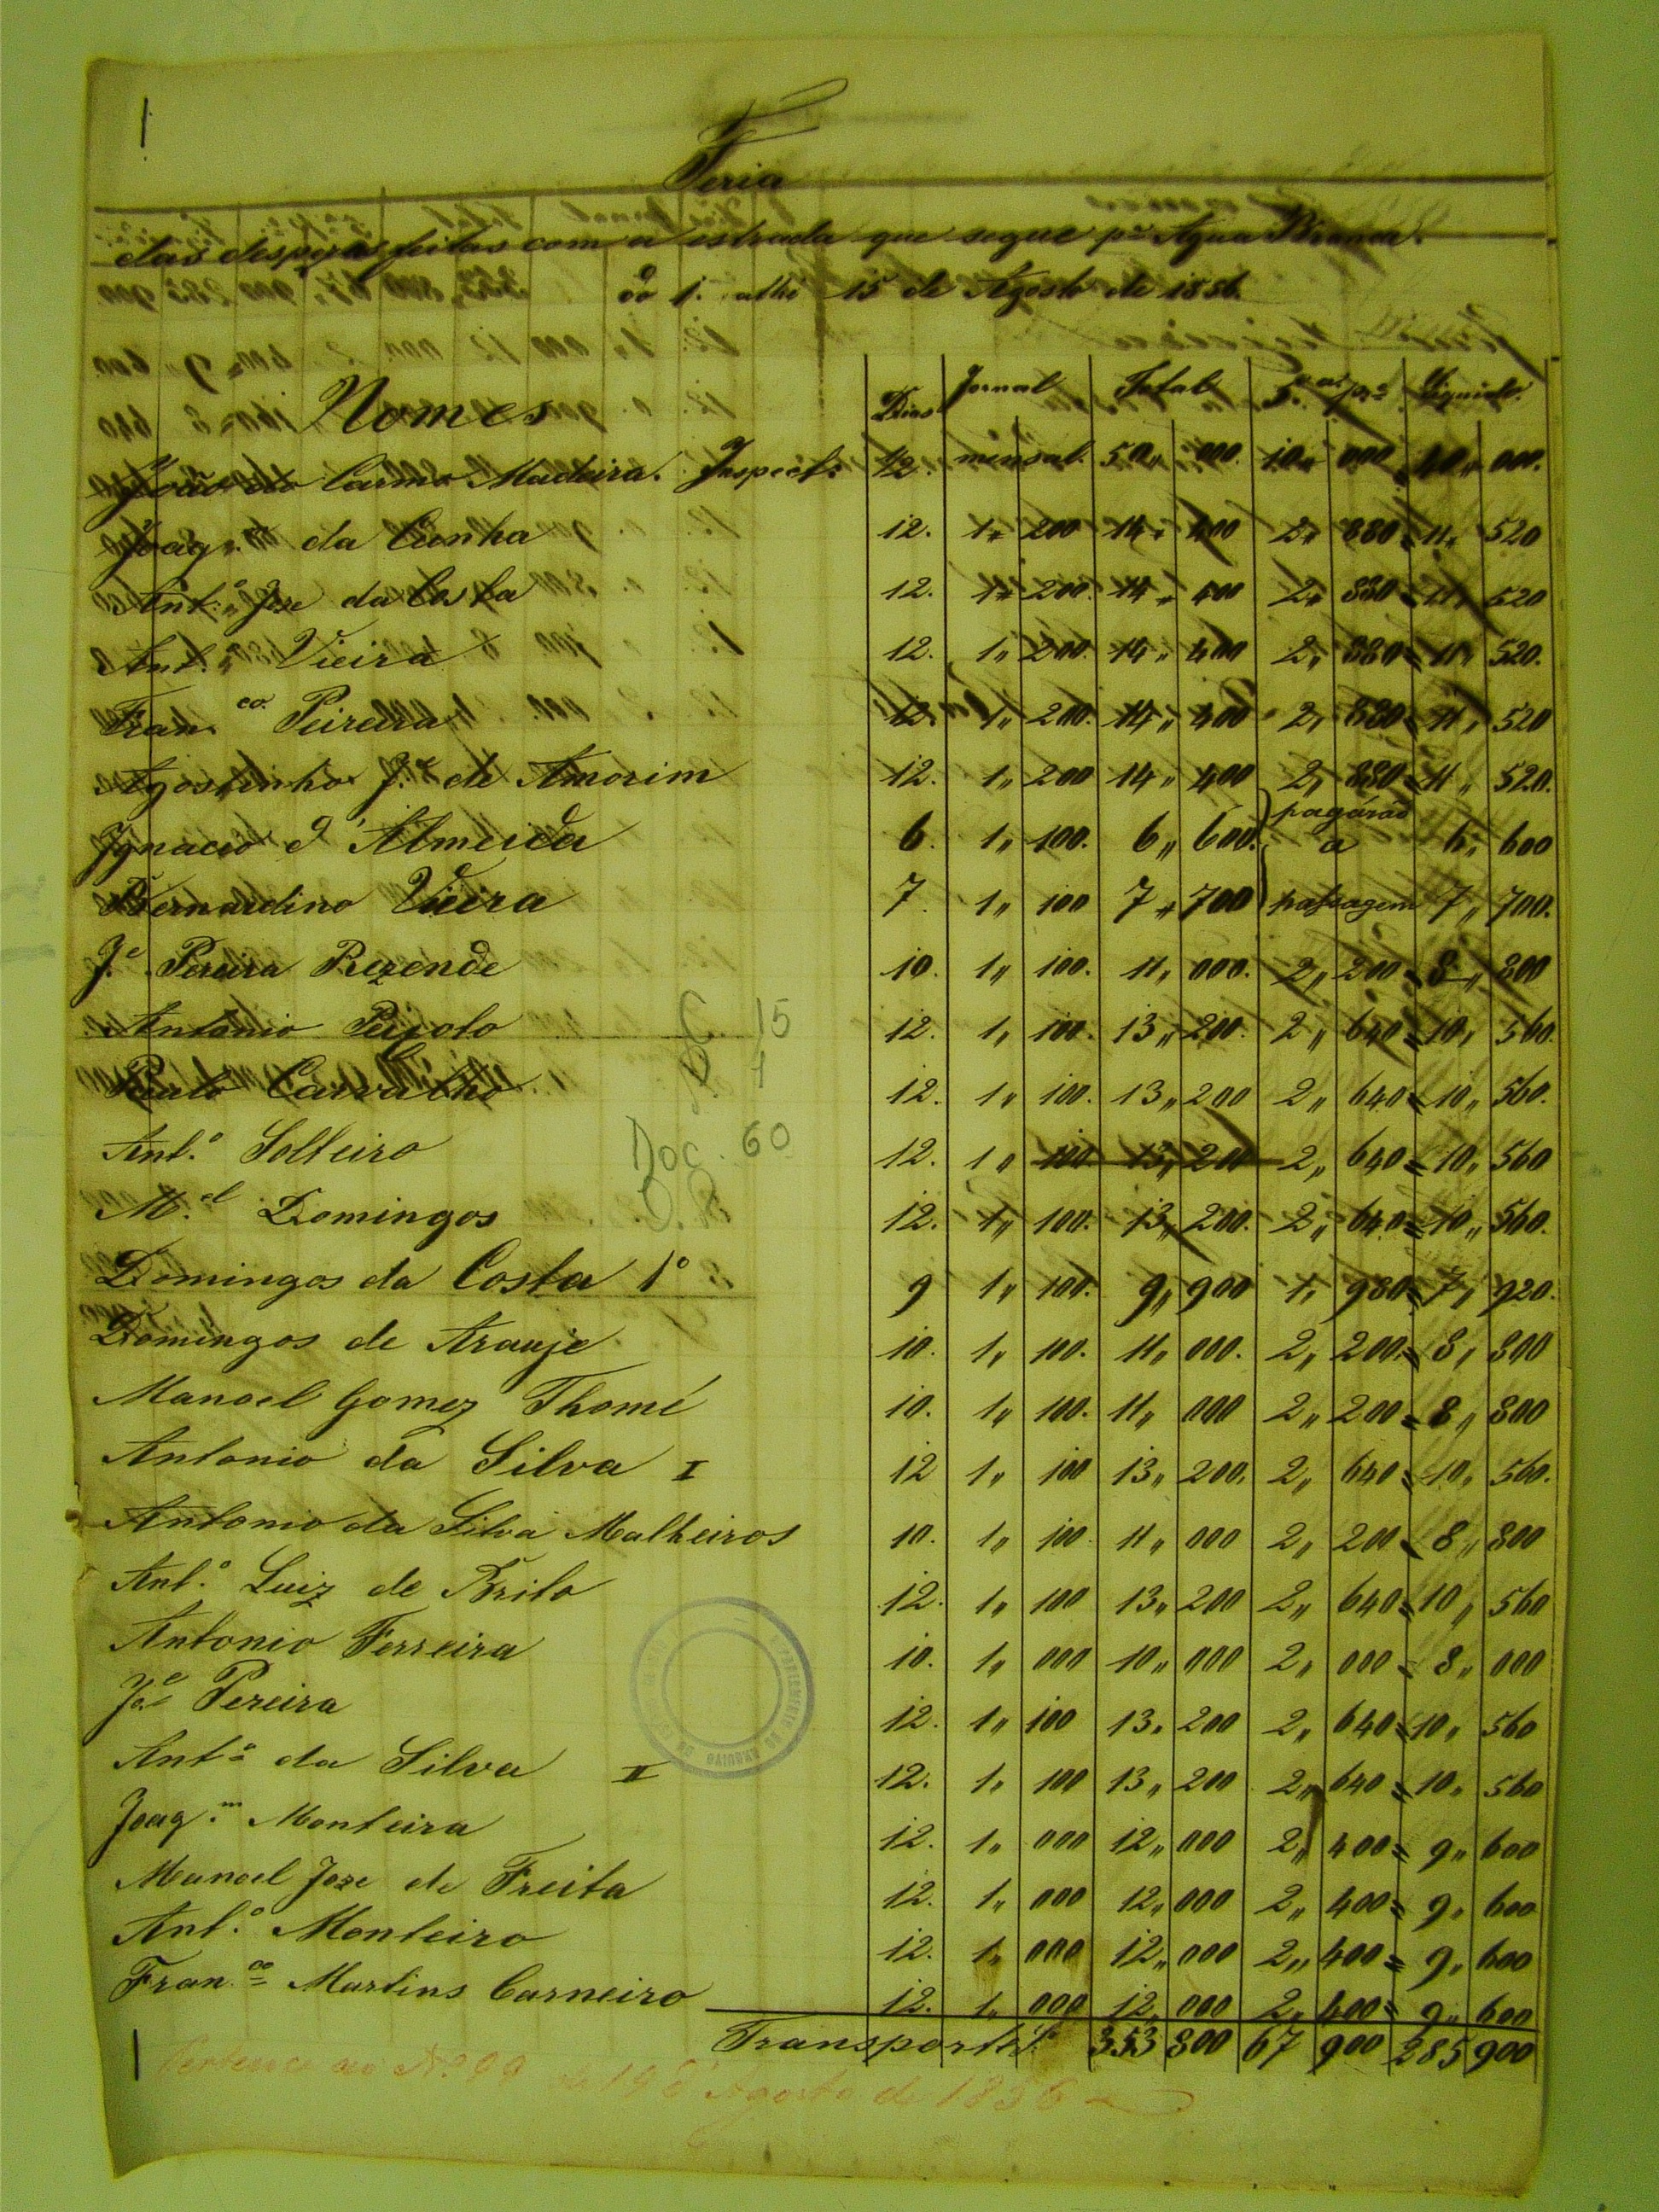 Feria
das despezas feitas com a estrada que segue pª Agua Branca.
do 1º athé 15 de Agosto de 1856.
Nomes Dias Jornal Total 5.as p.es Liquido.
João do Carmo Madeira. Inspect.r 12. mensal. 50,, 000. 10,, 000 40,, 000.
Joaq.m da Cunha 12. 1,, 200 14,, 400 2,, 880 = 11,, 520
Ant.º Jose da Costa 12. 1,, 200. 14,, 400 2,, 880 = 11,, 520
Ant.º Vieira 12. 1,, 200. 14,, 400 2,, 880 = 11,, 520.
Fran.co Peireira 12. 1,, 200. 14,, 400 2,, 880 = 11,, 520
Agostinho J.e de Amorim 12. 1,, 200 14,, 400 2,, 880 = 11,, 520.
Ignacio d'Almeida 6. 1,, 100. 6,, 600. pagárão a 6,, 600
Bernardino Vieira 7. 1,, 100 7,, 700 passagem 7,, 700.
J.e Pereira Rezende 10. 1,, 100. 11,, 000. 2,, 200 = 8,, 800
Antonio Peixoto 12. 1,, 100. 13,, 200. 2,, 640 = 10,, 560.
C 15
Carvalho 12. 1,, 100. 13,, 200 2,, 640 = 10,, 560.
Ant.º Solteiro 12. 1,, 100 13,, 200 2,, 640 = 10,, 560
Doc. 60
M.el Domingos 12. 1,, 100. 13,, 200. 2,, 640 = 10,, 560.
Domingos da Costa 1º 9 1,, 100. 9,, 900 1,, 980 = 7,, 920.
Domingos de Araujo 10. 1,, 100. 11,, 000. 2,, 200 = 8,, 800
Manoel Gomez Thomé 10. 1,, 100. 11,, 000 2,, 200 = 8,, 800
Antonio da Silva I 12 1,, 100 13,, 200. 2,, 640 = 10,, 560.
Antonio da Silva Malheiros 10. 1,, 100 11,, 000 2,, 200 = 8,, 800
Ant.º Luiz de Brito 12. 1,, 100 13,, 200 2,, 640 = 10,, 560
Antonio Ferreira 10. 1,, 000 10,, 000 2,, 000 = 8,, 000
J.e Pereira 12. 1,, 100 13,, 200 2,, 640 = 10,, 560
Ant.º da Silva II 12. 1,, 100 13,, 200 2,, 640 = 10,, 560
Joaq.m Monteira 12. 1,, 000 12,, 000 2,, 400 = 9,, 600
Manoel Jose de Freita 12. 1,, 000 12,, 000 2,, 400 = 9,, 600
Ant.º Monteiro 12. 1,, 000 12,, 000 2,, 400 = 9,, 600
Fran.co Martins Carneiro 12. 1,, 000 12,, 000 2,, 400 = 9,, 600
Transporte 353 800 67 900 285 900
Pertence ao Nº 99 de 19 d'Agosto de 1856